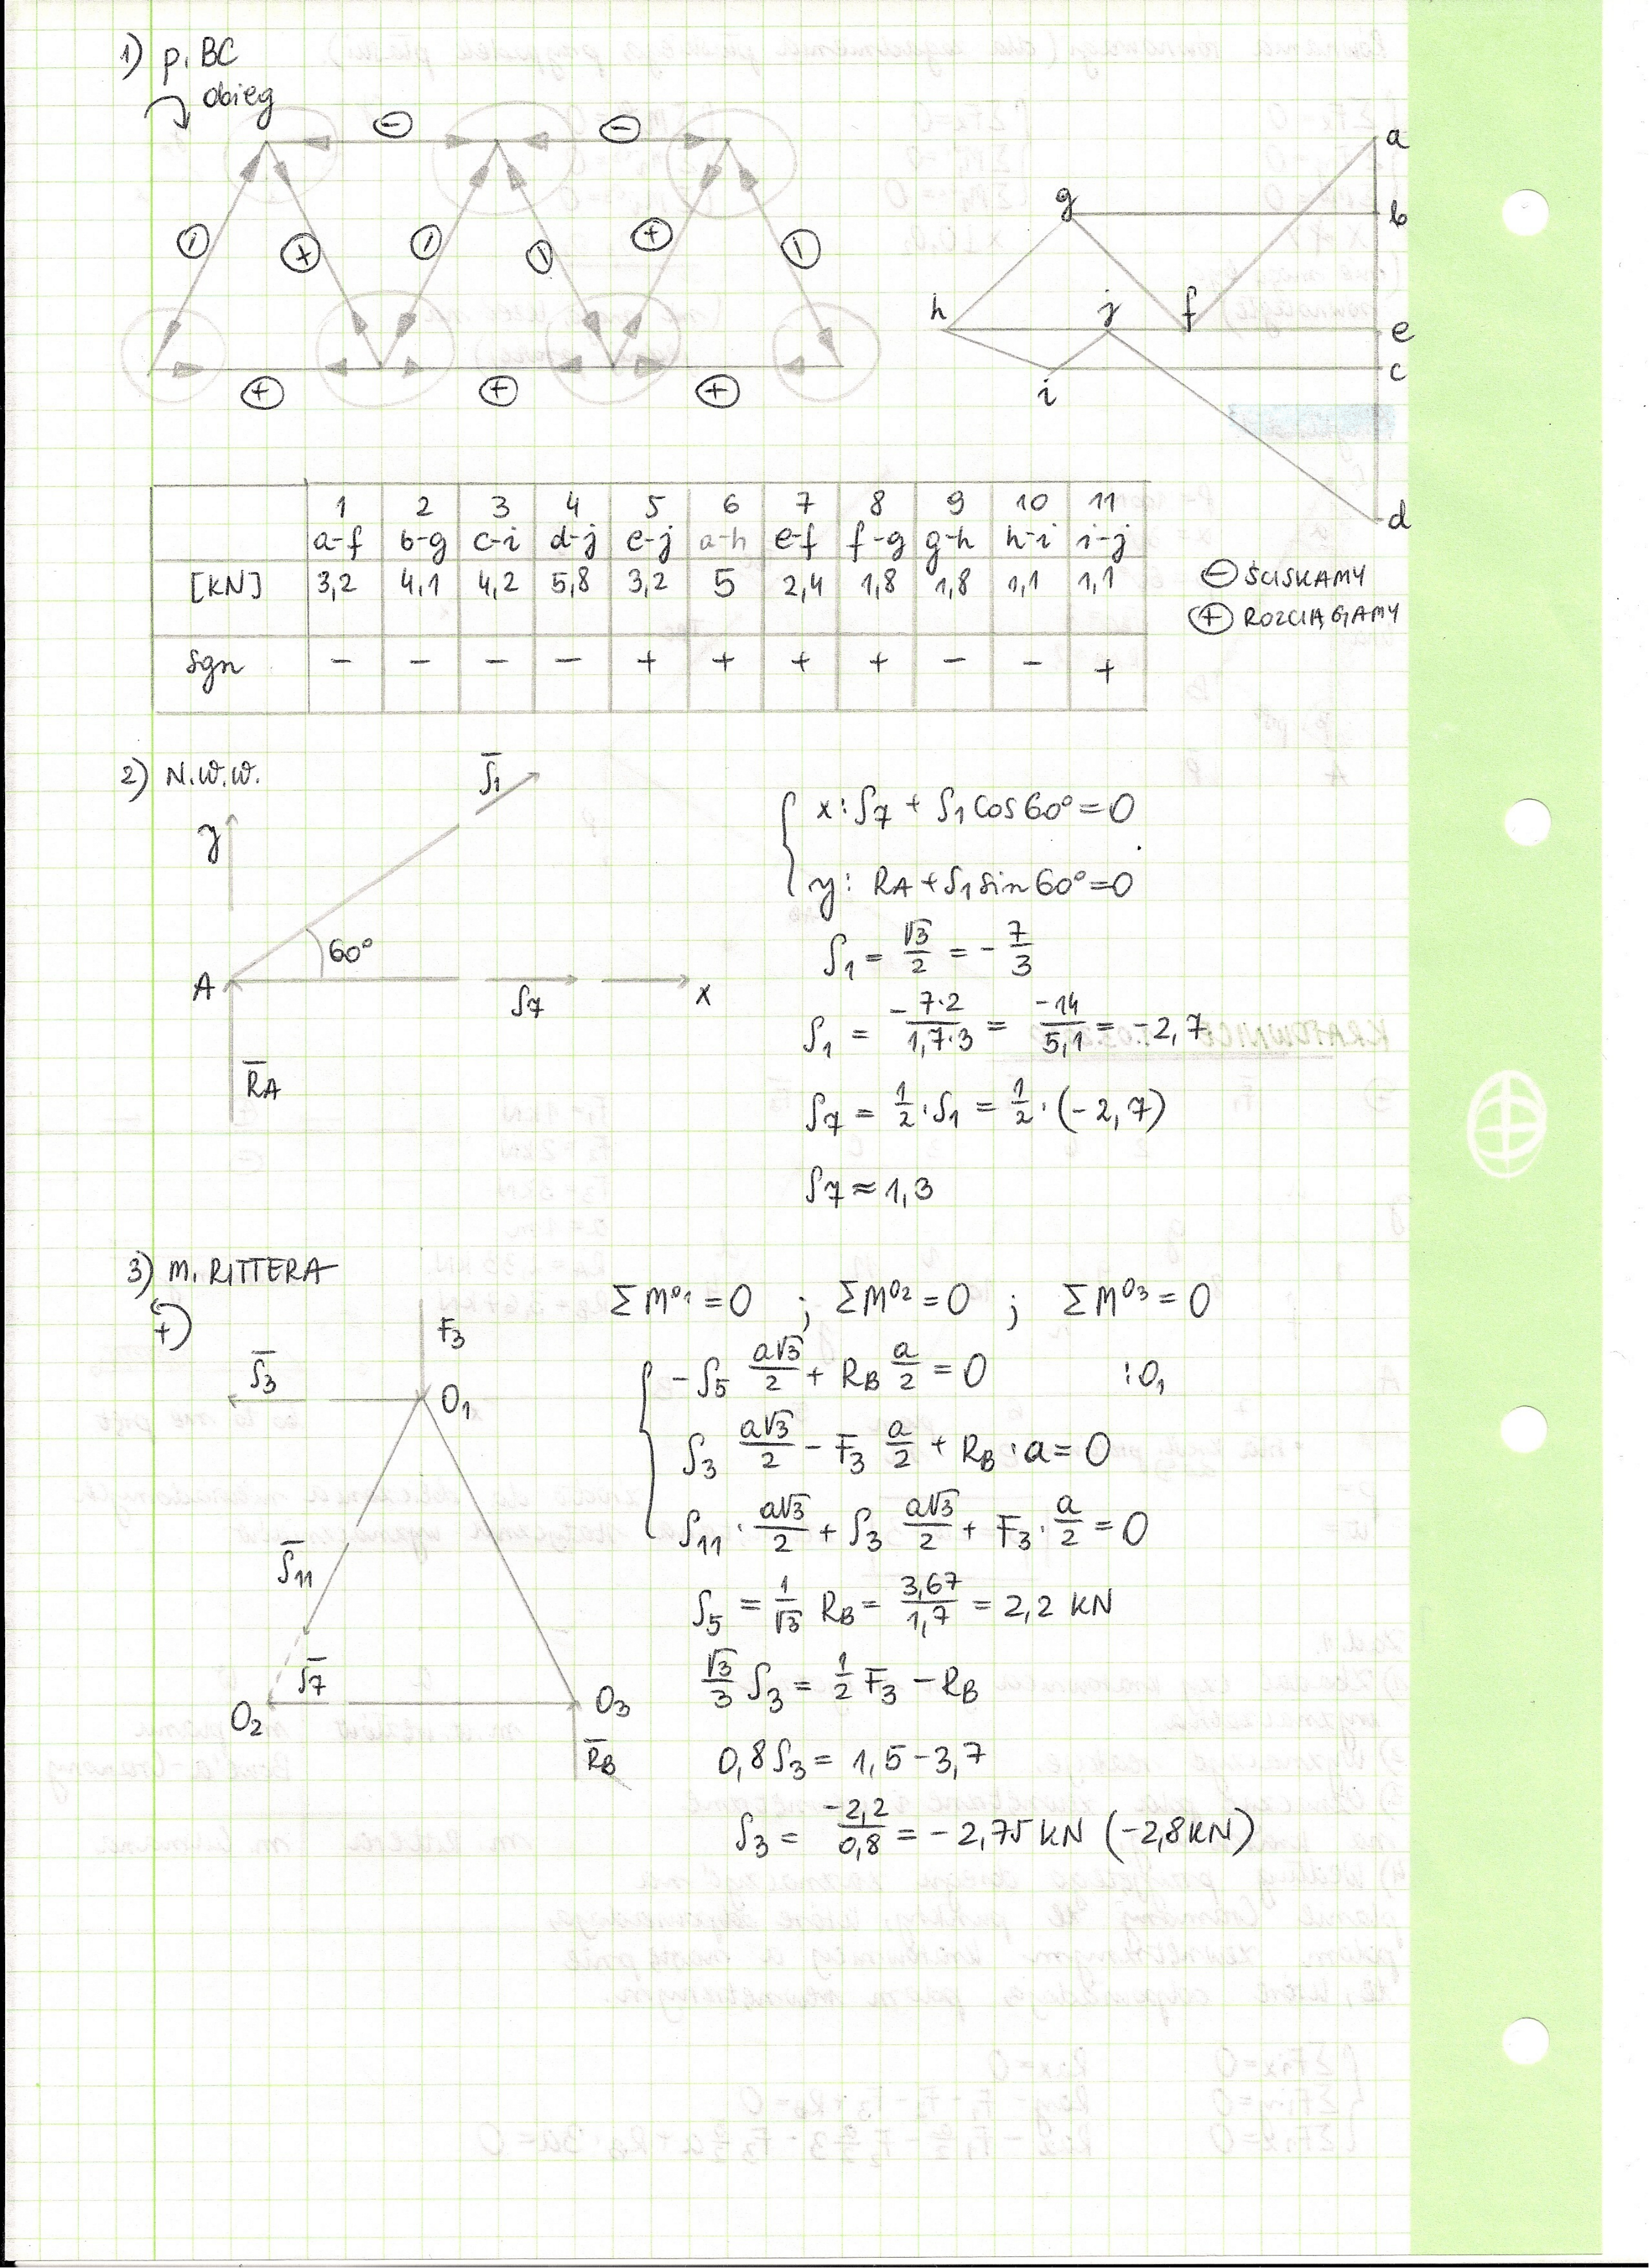 1) p. BC
obieg
⊖ ⊖
⊖ ⊕ ⊖ ⊖ ⊕ ⊖
⊕ ⊕ ⊕
a
g b
h j f e
i c
d
1 2 3 4 5 6 7 8 9 10 11
a-f b-g c-i d-j e-j a-h e-f f-g g-h h-i i-j
[KN] 3,2 4,1 4,2 5,8 3,2 5 2,4 1,8 1,8 1,1 1,1
sgn - - - - + + + + - - +
⊖ ŚCISKAMY
⊕ ROZCIĄGAMY
2) N.W.W.
S̅1
y
60°
A S7 x
R̅A
x: S7 + S1 cos 60° = 0
y: RA + S1 sin 60° = 0
S1 = √3/2 = - 7/3
S1 = -7·2/1,7·3 = -14/5,1 = -2,7
S7 = 1/2 · S1 = 1/2 · (-2,7)
S7 ≈ 1,3
3) M. RITTERA
+
F3
S̅3
O1
S̅11
S̅7
O2 O3
R̅B
ΣM^O1 = 0 ; ΣM^O2 = 0 ; ΣM^O3 = 0
-S5 a√3/2 + RB a/2 = 0 :O1
S3 a√3/2 - F3 a/2 + RB · a = 0
S11 · a√3/2 + S3 a√3/2 + F3 · a/2 = 0
S5 = 1/√3 RB = 3,67/1,7 = 2,2 KN
√3/3 S3 = 1/2 F3 - RB
0,8 S3 = 1,5 - 3,7
S3 = -2,2/0,8 = -2,75 KN (-2,8 KN)